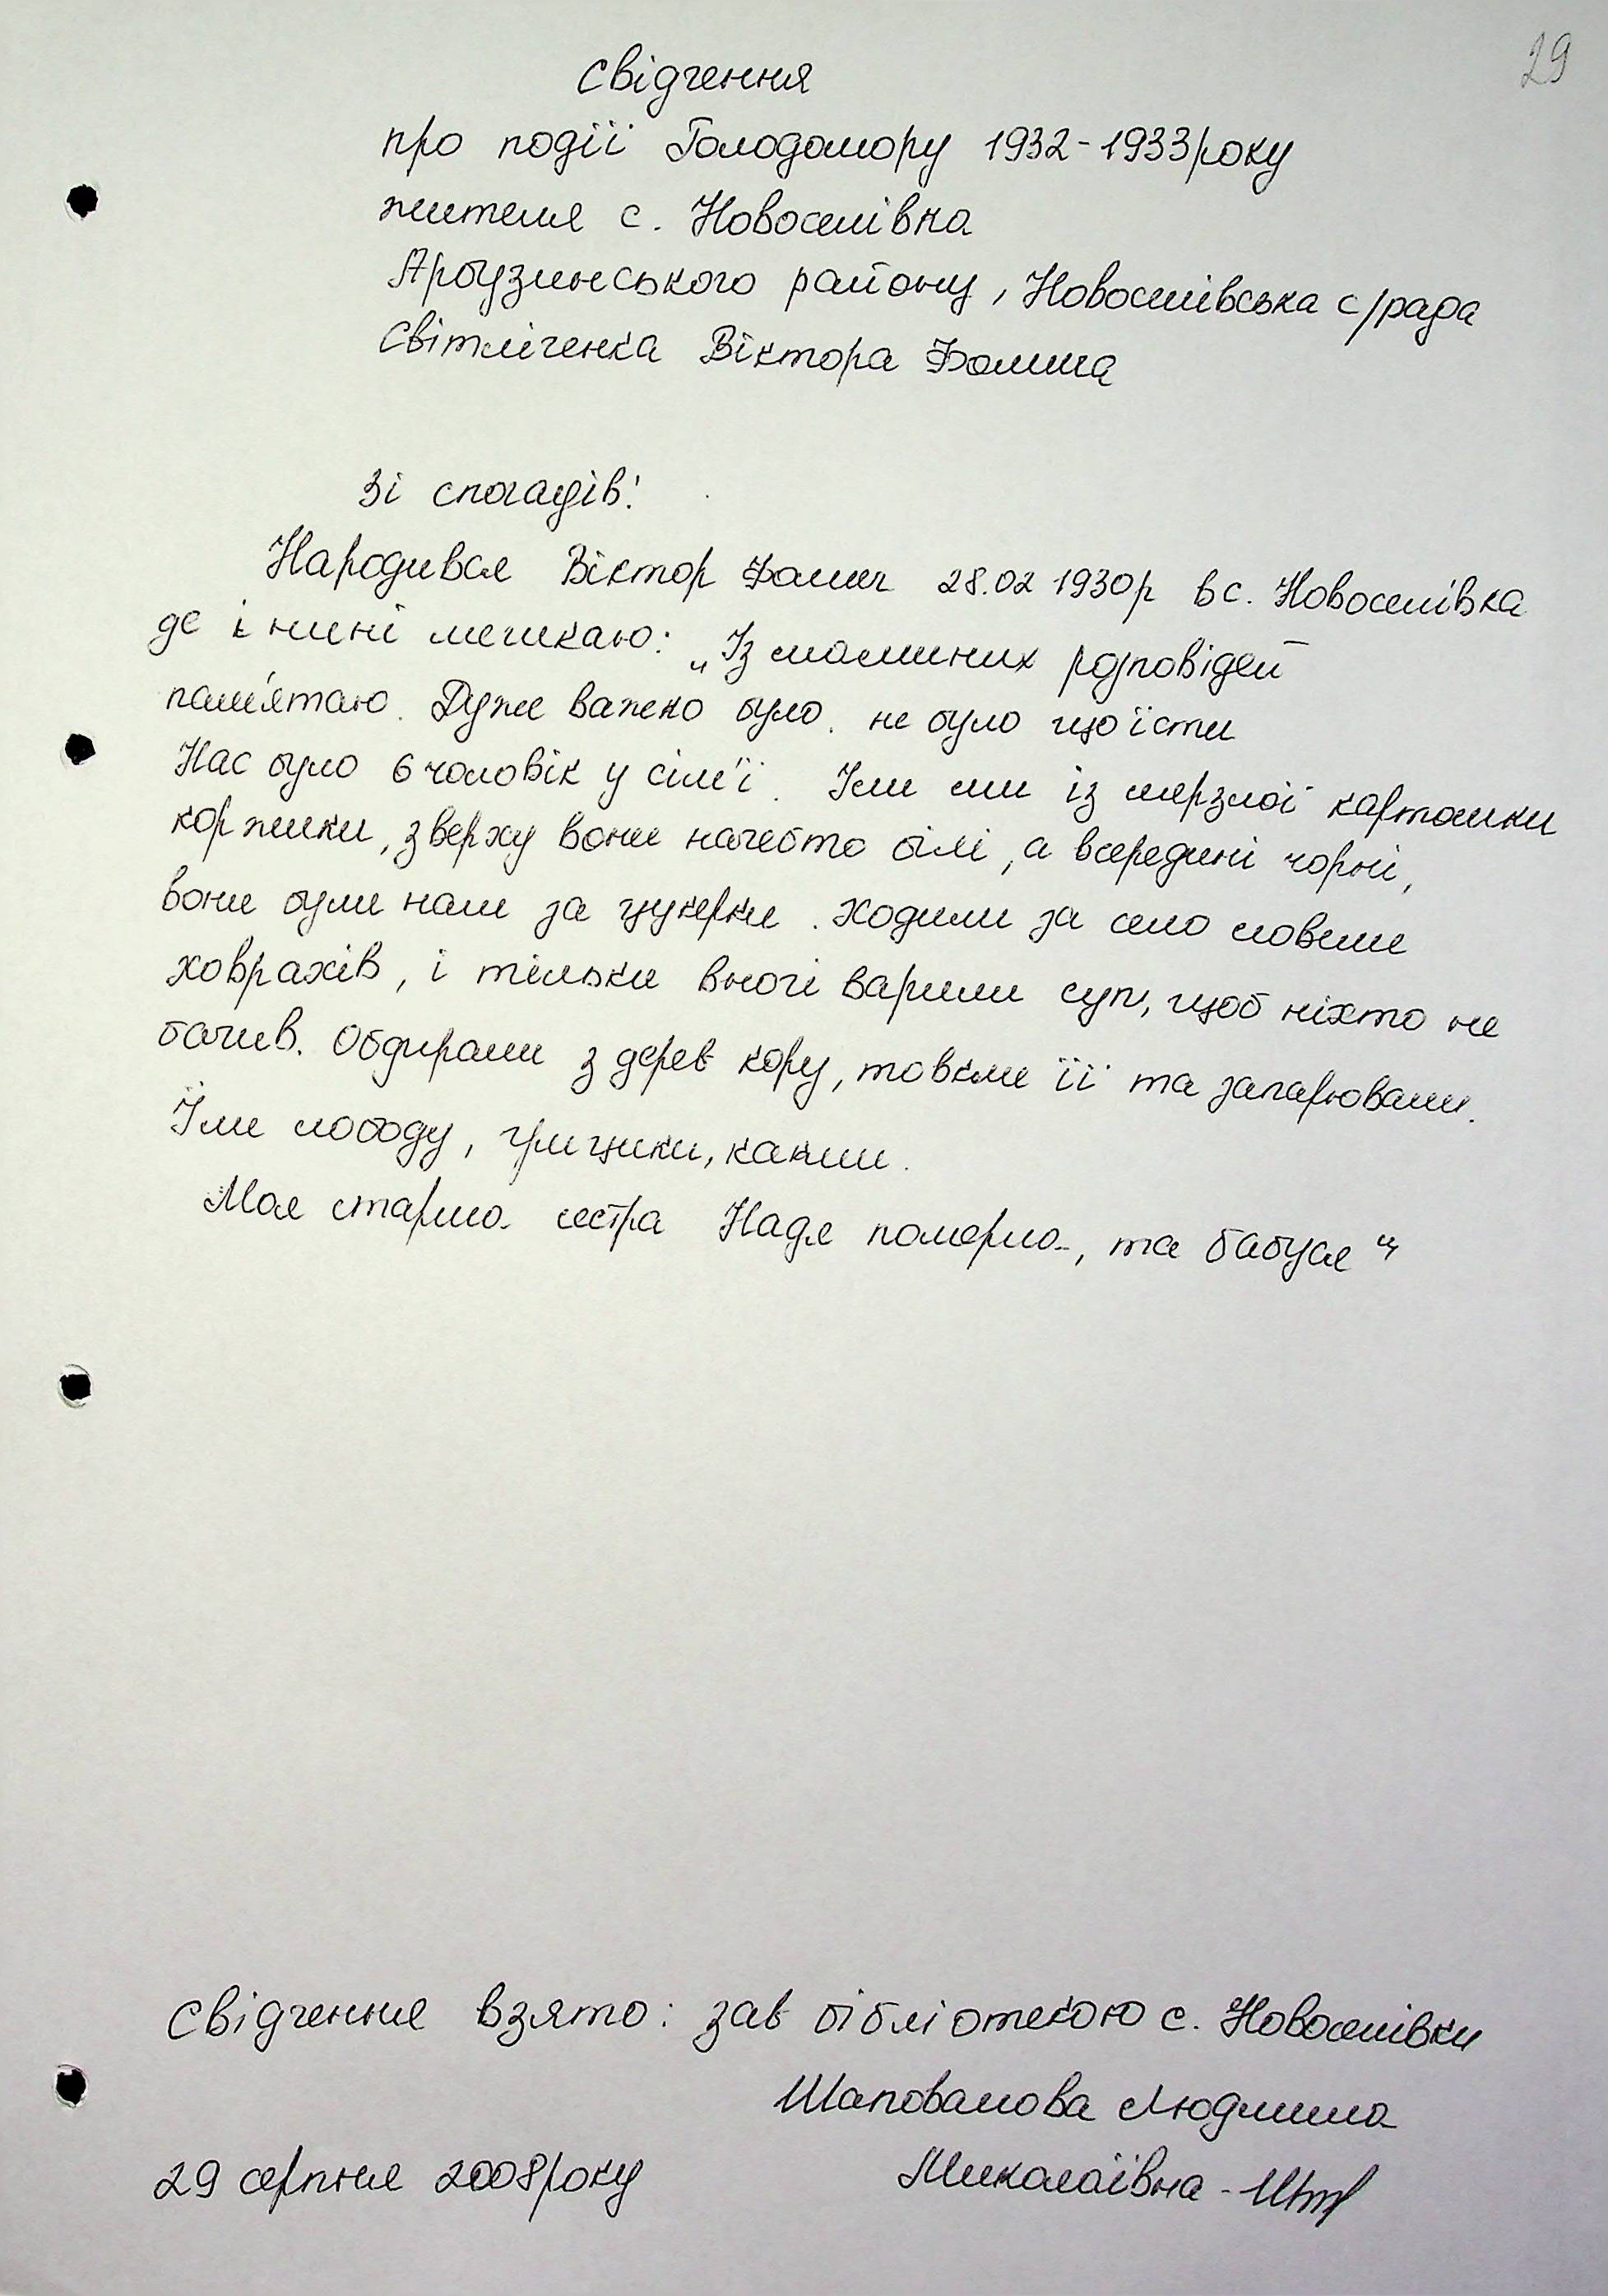 29
Свідчення
про події Голодомору 1932-1933року
жителя с. Новоселівка
Арбузинського району, Новоселівська с/рада
Світліченка Віктора Фомича
Зі спогадів:
Народився Віктор Фомич 28.02 1930р в с. Новоселівка
де і нині мешкаю: „Із маминих розповідей
пам'ятаю. Дуже важко було. не було що їсти
Нас було 6 чоловік у сім'ї. Їли ми із мерзлої картошки
коржики, зверху вони начебто білі, а всередині чорні,
вони були нам за цукерки. Ходили за село ловили
ховрахів, і тільки вночі варили суп, щоб ніхто не
бачив. Обдирали з дерев кору, товкли її та запарювали.
Їли лободу, грицики, качки.
Моя старша сестра Надя померла, та бабуся"
Свідчення взято: зав бібліотекою с. Новоселівки
Шаповалова Людмила
29 серпня 2008року Миколаївна -